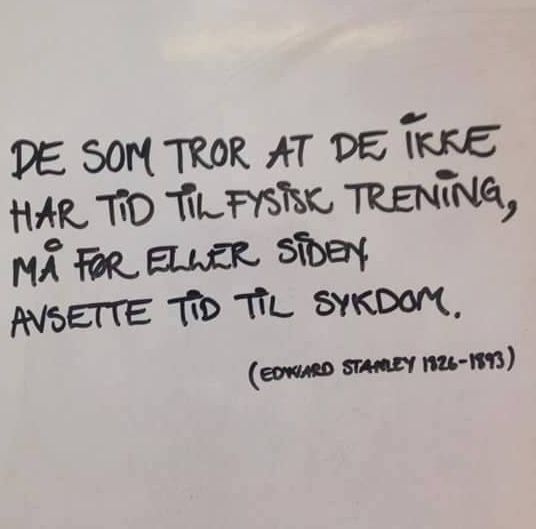 DE SOM TROR AT DE IKKE
HAR TID TIL FYSISK TRENING,
MÅ FØR ELLER SIDEN
AVSETTE TID TIL SYKDOM.
(EDWARD STANLEY 1826-1893)